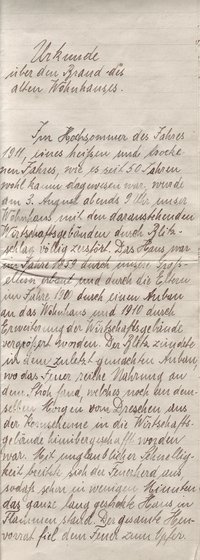 Urkunde
über den Brand des
alten Wohnhauses.
Im Hochsommer des Jahres
1911, eines heißen und trocke-
nen Jahres, wie es seit 50 Jahren
wohl kaum dagewesen war, wurde
am 3. August abends 9 Uhr unser
Wohnhaus mit den daranstehenden
Wirtschaftsgebäuden durch Blitz-
schlag völlig zerstört. Das Haus war
im Jahre 1859 durch unsere Groß-
eltern erbaut und durch die Eltern
im Jahre durch einen Anbau
an das Wohnhaus und 1910 durch
Erweiterung der Wirtschaftsgebäude
vergrößert worden. Der Blitz zündete
in dem zuletzt gemachten Anbau,
wo das Feuer reiche Nahrung an
dem Stroh fand, welches noch an dem-
selben Morgen vom Dreschen aus
der Kornscheune in die Wirtschafts-
gebäude hinübergeschafft worden
war. Mit unglaublicher Schnellig-
keit breitete sich der Feuerherd aus,
sodaß schon in wenigen Minuten
das ganze lang gestreckte Haus in
Flammen stand. Der ganze Heu-
vorrat fiel dem Feuer zum Opfer.